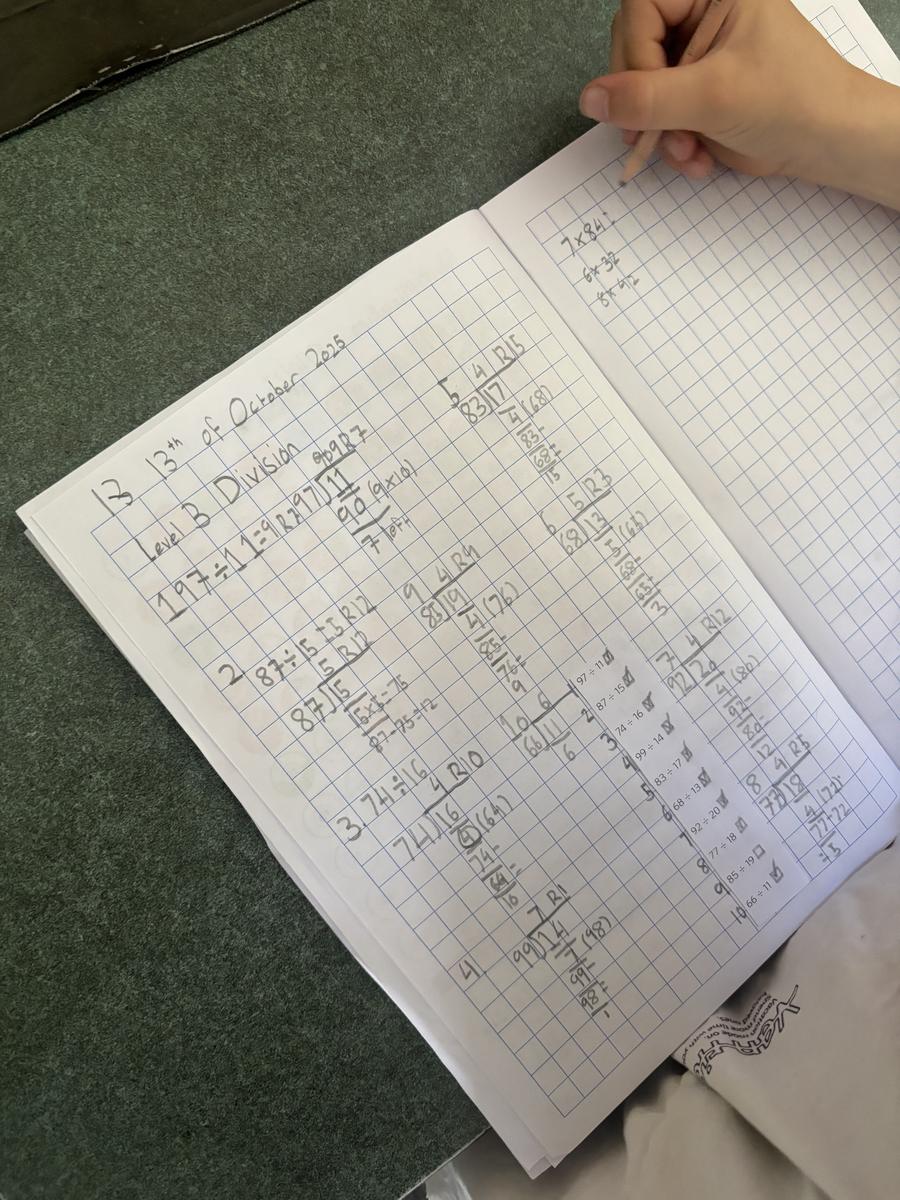 13th of October 2025
Level B Division
1 97÷11=9R7
909R7
97 11
90 (9×10)
7 left
2 87÷15=5R12
5R12
87 15
15×5=75
87-75=12
3. 74÷16
4 R10
74 16
(64)
74-
64=
10
4
7 R1
99 14
7 (98)
99-
98=
1
5
4 R15
83 17
4 (68)
83-
68=
15
6
5 R3
68 13
5 (65)
68-
65=
3
7
4 R12
92 20
4 (80)
92-
80=
12
8
4 R5
77 18
4 (72)
77-72
=5
9
4 R4
85 19
4 (76)
85-
76=
9
10 6
66 11
6
1 97 ÷ 11
2 87 ÷ 15
3 74 ÷ 16
4 99 ÷ 14
5 83 ÷ 17
6 68 ÷ 13
7 92 ÷ 20
8 77 ÷ 18
9 85 ÷ 19
10 66 ÷ 11
7×84=
6×32
8×92
Vacation mode on